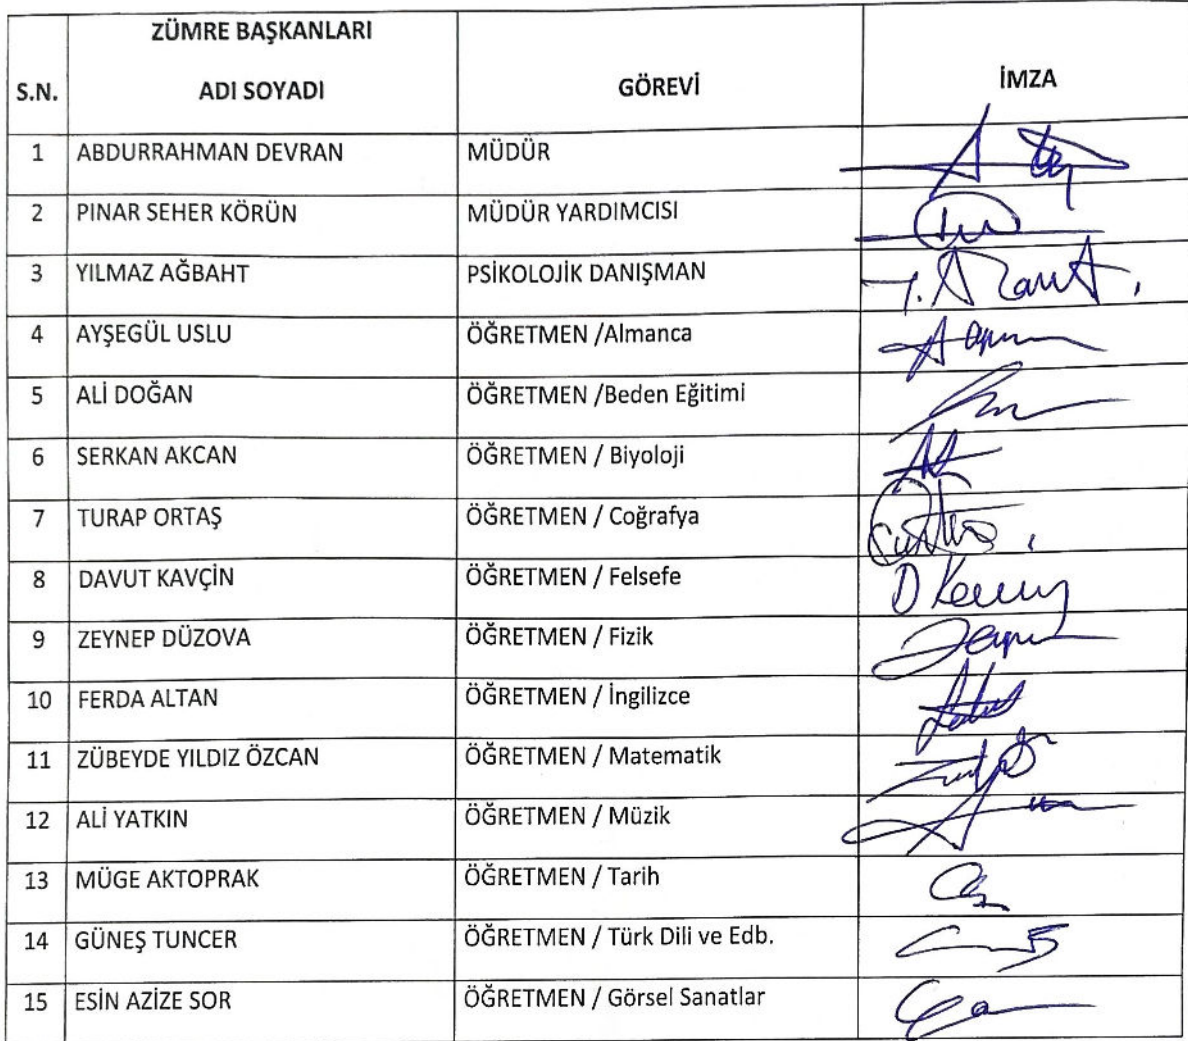 ZÜMRE BAŞKANLARI
S.N. ADI SOYADI GÖREVİ İMZA
1 ABDURRAHMAN DEVRAN MÜDÜR
2 PINAR SEHER KÖRÜN MÜDÜR YARDIMCISI
3 YILMAZ AĞBAHT PSİKOLOJİK DANIŞMAN
4 AYŞEGÜL USLU ÖĞRETMEN /Almanca
5 ALİ DOĞAN ÖĞRETMEN /Beden Eğitimi
6 SERKAN AKCAN ÖĞRETMEN / Biyoloji
7 TURAP ORTAŞ ÖĞRETMEN / Coğrafya
8 DAVUT KAVÇİN ÖĞRETMEN / Felsefe
9 ZEYNEP DÜZOVA ÖĞRETMEN / Fizik
10 FERDA ALTAN ÖĞRETMEN / İngilizce
11 ZÜBEYDE YILDIZ ÖZCAN ÖĞRETMEN / Matematik
12 ALİ YATKIN ÖĞRETMEN / Müzik
13 MÜGE AKTOPRAK ÖĞRETMEN / Tarih
14 GÜNEŞ TUNCER ÖĞRETMEN / Türk Dili ve Edb.
15 ESİN AZİZE SOR ÖĞRETMEN / Görsel Sanatlar